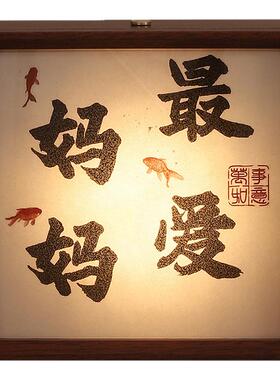 最爱
妈妈
万事如意